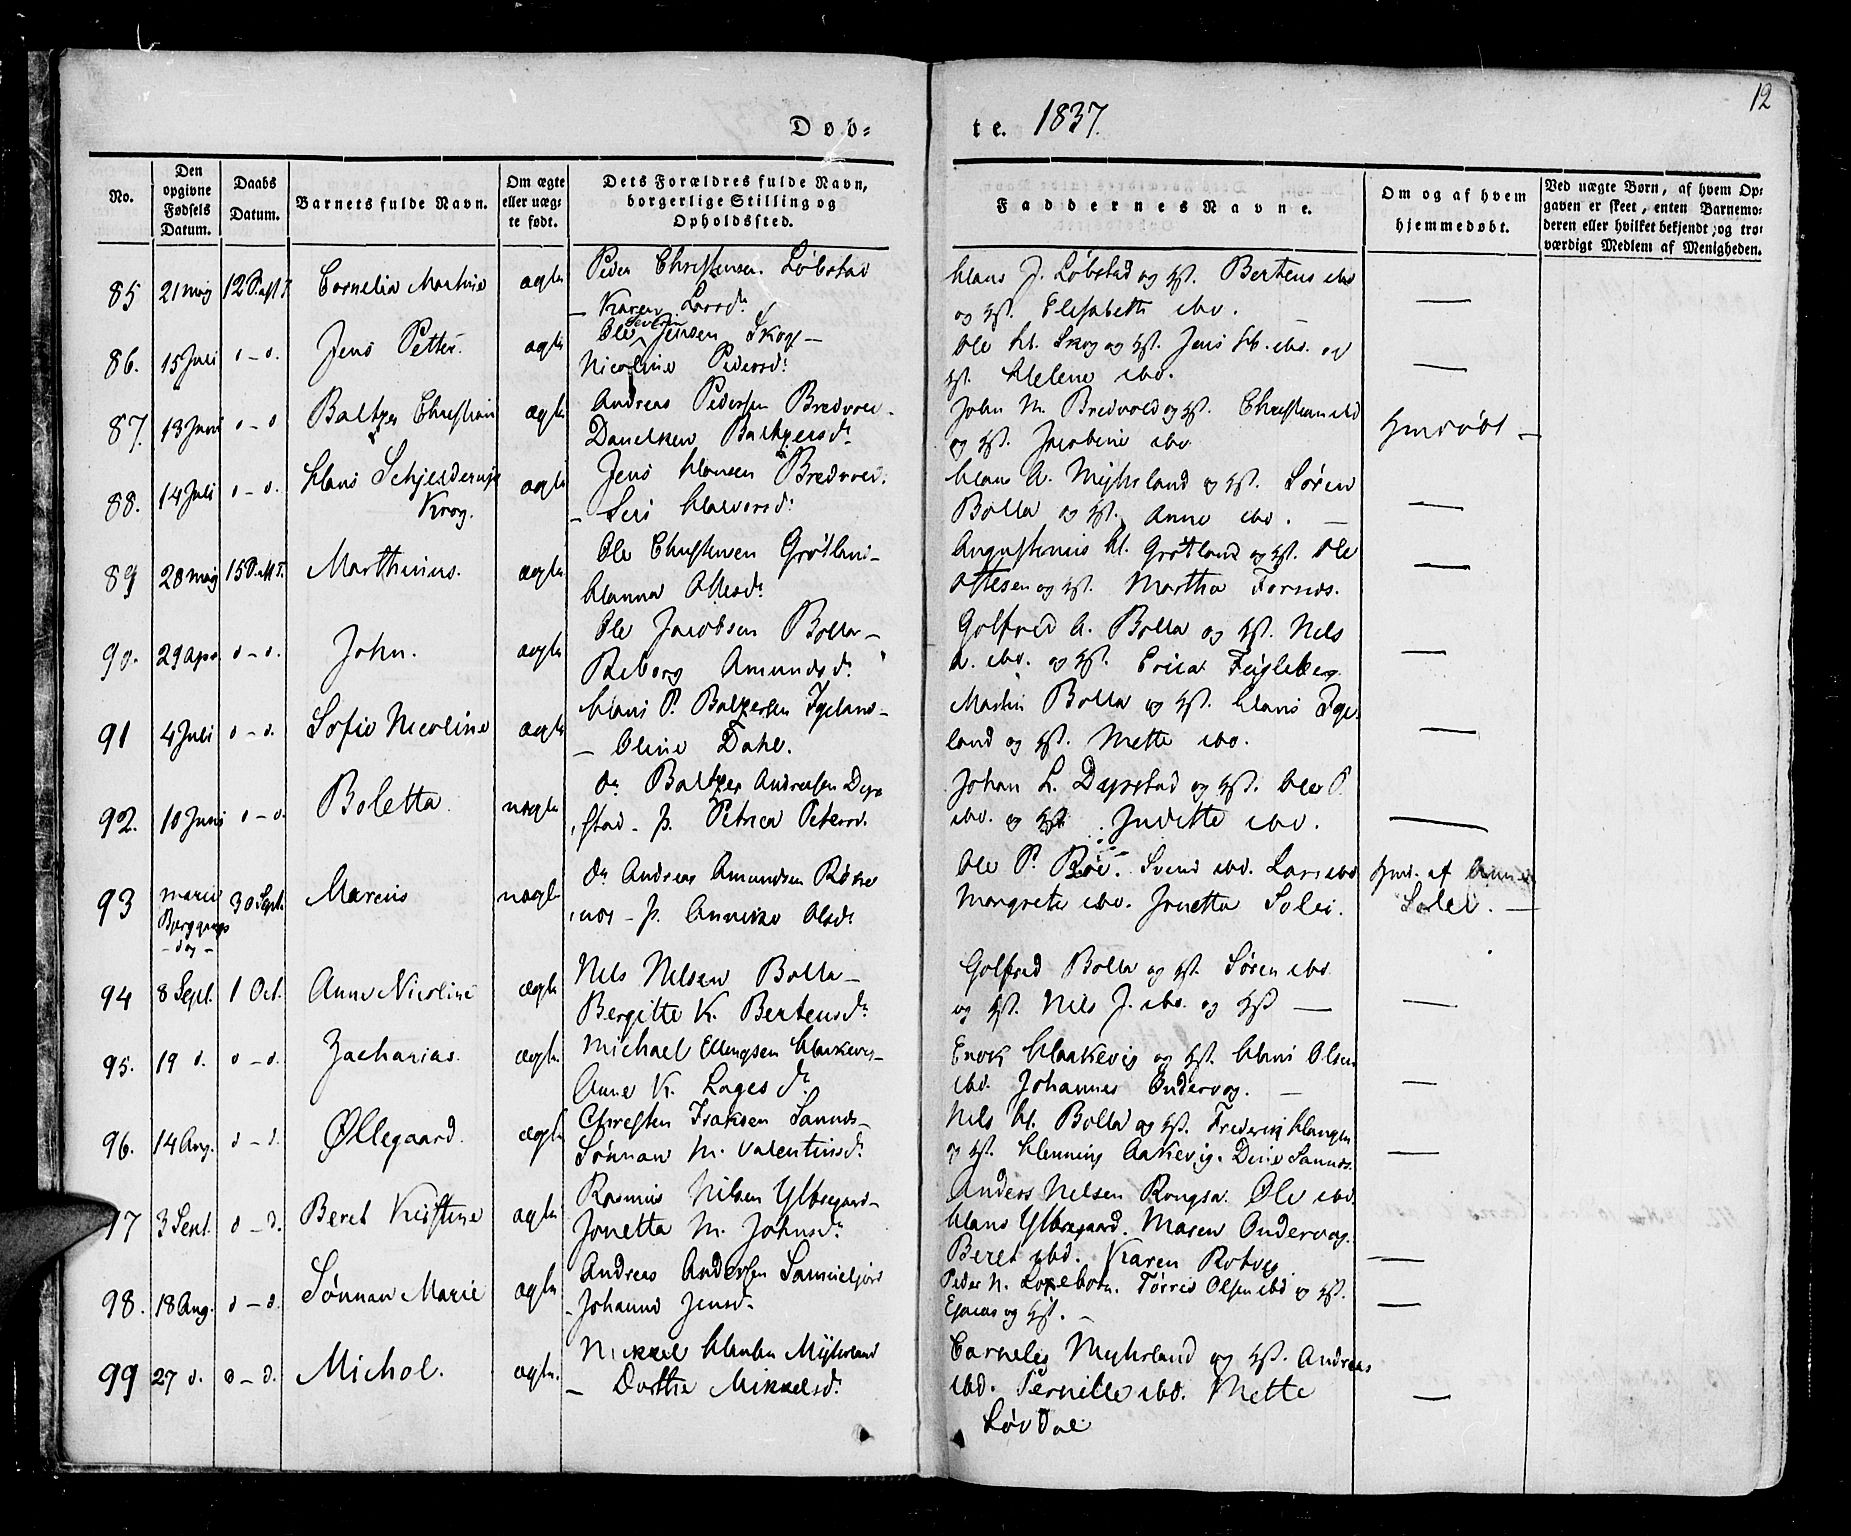 12
Døb-
te. 1837.
No.
Den opgivne Fødsels Datum.
Daabs Datum.
Barnets fulde Navn.
Om ægte eller uægte født.
Dets Forældres fulde Navn, borgerlige Stilling og Opholdsted.
Faddernes Navne.
Om og af hvem hjemmedøbt.
Ved uægte Børn, af hvem Opgaven er skeet, enten Barnemoderen eller hvilket bekjendt, og troværdigt Medlem af Menigheden.
85 21 May 12 P. Cornelia Martine ægte Peder Christensen Løbstad
– Karen Larsd.
Hans J. Løbstad og Hst. Bertens ibd
og Hst. Elisabeth ibd. —
86. 15 Juli d – d. Jens Petter. ægte Ole Jensen Skog –
Nicoline Pedersd.
Ole H. Skog og Hst. Jens ibd. og
Hst. Helene ibd. —
87. 13 Juni d – d Baltzer Christian ægte Andreas Pedersen Bredvold.
Danelken Baltzersd.
John M. Bredvold og Hst. Christian ibd
og Hst. Jacobine ibd
Hmdøbt –
88. 14 Juli d – d. Hans Schjelderup Krog. ægte Jens Hansen Bredvold.
– Siri Halvorsd.
Hans A. Myhrland og Hst. Søren
Bolla og Hst. Anne ibd. —
89 28 May 15 P. Marthinus. ægte Ole Christensen Grøtland –
Hanna Ottesd.
Augustinus H. Grøtland og Hst. Ole
Ottesen og Hst. Martha Fornes. —
90. 29 Apr. d – d. John. ægte Ole Jacobsen Bolla –
Reborg Amundsd.
Golfred A. Bolla og Hst. Nels
A. ibd. og Hst. Ericca Fugleberg —
91 4 Juli d – d. Sofie Nicoline ægte Hans P. Baltzersen Igeland –
– Oline Dahl.
Martin Bolla og Hst. Hans Ige-
land og Hst. Mette ibd. —
92. 10 Juni d – d. Boletta uægte Baltzer Andreasen Dyr-
stad – p. Petrica Petersd.
Johan L. Dyrstad og Hst. Ole P.
ibd. og Hst. Juditte ibd. —
93 Marie Bjerggangs – dag – 30 Sept. Marcus uægte Andreas Amundsen
– p. Annike Olsd.
Ole P. Røe. Svend ibd. Lars ibd
Margrete ibd. Jonetta Solei.
Hmd. af Anne Solei. –
94 8 Sept. 1 Oct. Anne Nicoline ægte Nels Nelsen Bolla –
Bergitte K. Bertensd.
Golfred Bolla og Hst. Søren ibd
og Hst. Nils J. ibd. og Hst —
95. 19 d. d – d. Zacharias. ægte Michael Ellingsen Haakevig –
Anne K. Lagesd.
Enok Haakevig og Hst. Hans Olsen
ibd. Johannes Ondervog. —
96. 14 Aug. d – d. Øllegaard. ægte Christen Isaksen Sannds –
Sønnau M. Valentinsd.
Nils H. Bolla og Hst. Frederik Klangen
og Hst. Henning Aakevig. Dine Sannds. —
97 3 Sept. d – d. Beret Kirstine ægte Rasmus Nilsen Ylbregaard –
Jonetta M. Johnsd.
Anders Nelsen Rongsa. Ole ibd.
Hans Ylbregaard. Maren Ondervog.
Beret ibd. Karen Rotvig —
98. 18 Aug. d – d. Sønnau Marie ægte Andreas Andersen Samueljord
– Johanna Jensd.
Peder N. Loxebotn. Tørris Olsen ibd og Hst.
Esaias og Hst. – —
99 27 d. d – d. Michol. ægte. Mikkel Hansen Myhrland
– Dorthe Mikkelsd.
Cornelius Myhrland og Hst. Andreas
ibd. Pernille ibd. Mette
Løvdal —